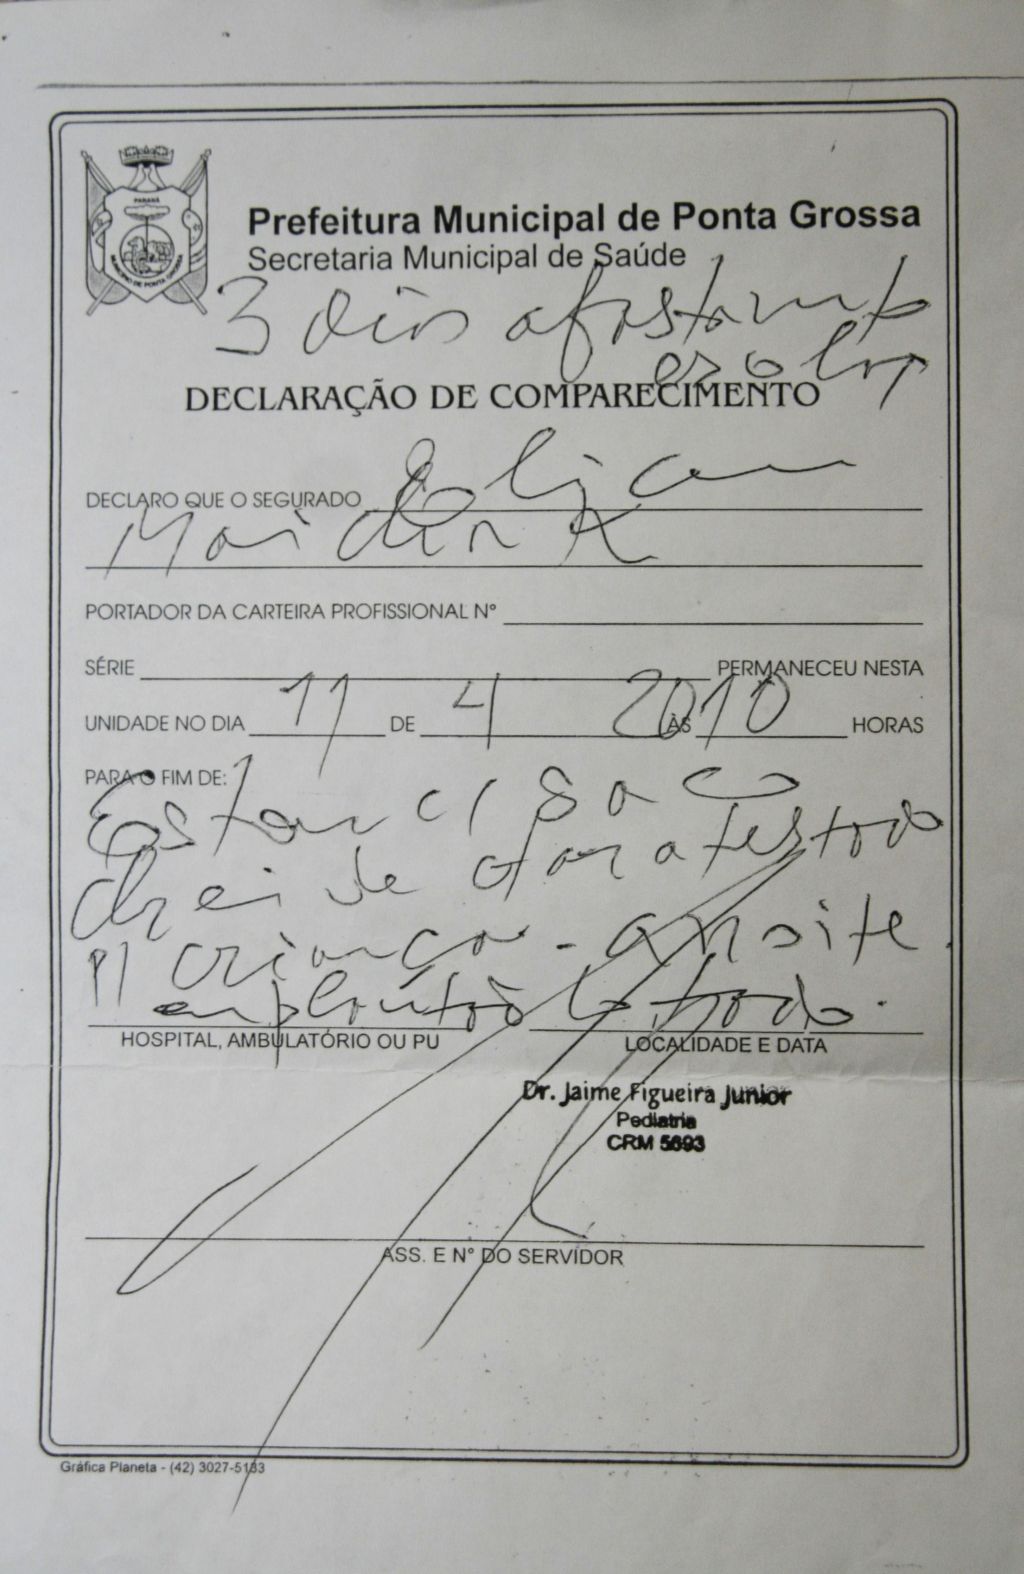 PARANÁ
MUNICÍPIO DE PONTA GROSSA
Prefeitura Municipal de Ponta Grossa
Secretaria Municipal de Saúde
3 dias afastamento
escolar
DECLARAÇÃO DE COMPARECIMENTO
DECLARO QUE O SEGURADO
PORTADOR DA CARTEIRA PROFISSIONAL Nº
SÉRIE PERMANECEU NESTA
UNIDADE NO DIA 11 DE 4 2010 ÀS HORAS
PARA O FIM DE:
Estar c/ saco
cheio de dar atestado
p/ criança - a noite
em plantão lotado.
HOSPITAL, AMBULATÓRIO OU PU LOCALIDADE E DATA
Dr. Jaime Figueira Junior
Pediatria
CRM 5693
ASS. E Nº DO SERVIDOR
Gráfica Planeta - (42) 3027-5133